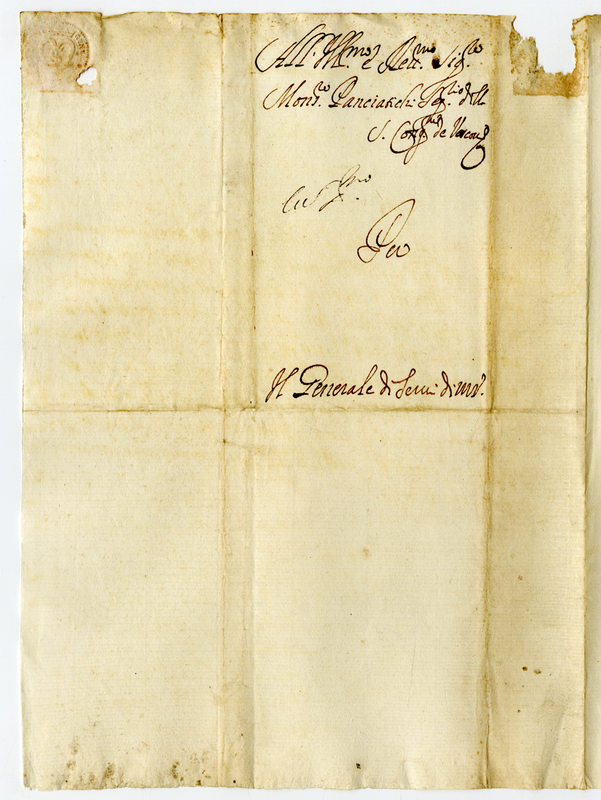 All. Ill.mo e Rev.mo Sig.re
Mons.re Panciatichi Seg.rio dell
S. Cong.ne de Vescou.
Per
Il Generale di Serui di M.V.